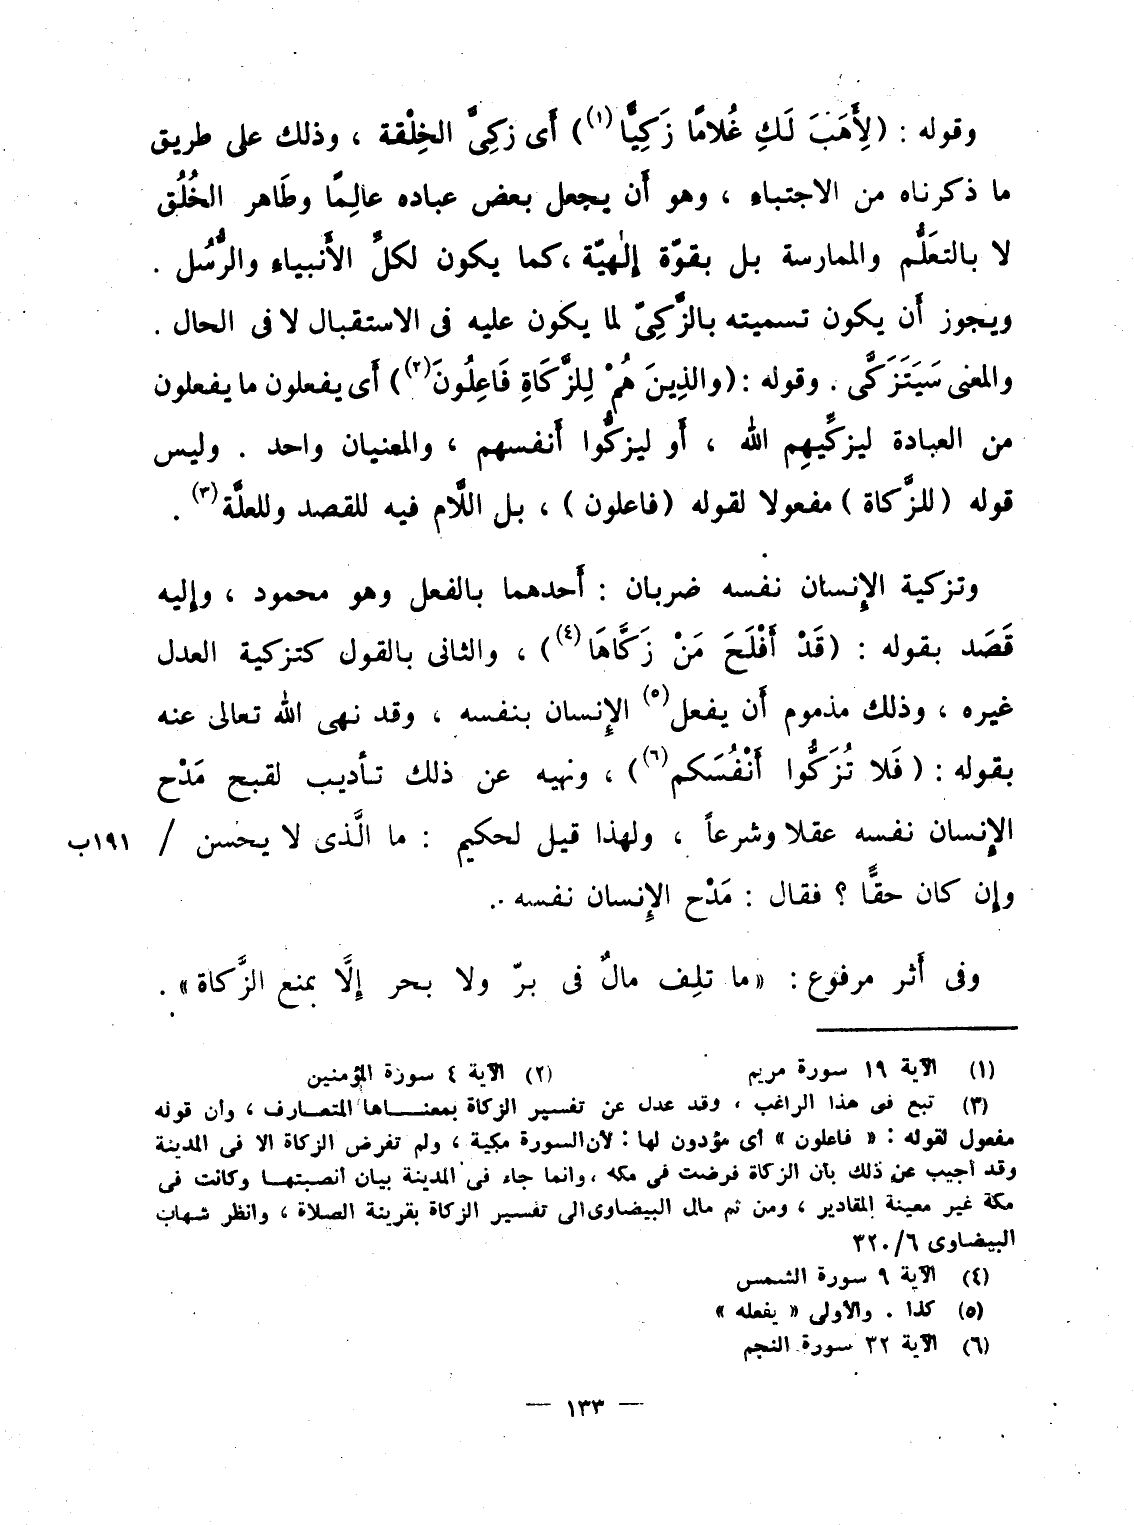 وقوله : (لِأَهَبَ لَكِ غُلامًا زَكِيًّا(١)) أَى زكِىَّ الخِلْقة ، وذلك على طريق
ما ذكرناه من الاجتباء ، وهو أَن يجعل بعض عباده عالِمًا وطَاهر الخُلُق
لا بالتعَلُّم والممارسة بل بقوّة إِلٰهيّة ،كما يكون لكلِّ الأَنبياء والرُّسُل .
ويجوز أَن يكون تسميته بالزَّكِىّ لما يكون عليه فى الاستقبال لا فى الحال .
والمعنى سَيَتَزَكَّى . وقوله : (والذِينَ هُمْ لِلزَّكَاةِ فَاعِلُونَ(٢)) أَى يفعلون ما يفعلون
من العبادة ليزكِّيهِم الله ، أَو ليزكُّوا أَنفسهم ، والمعنيان واحد . وليس
قوله (للزَّكاة) مفعولا لقوله (فاعلون) ، بل اللَّام فيه للقصد وللعلَّة(٣) .
وتزكية الإِنسان نفسه ضربان : أَحدهما بالفعل وهو محمود ، وإليه
قَصَد بقوله : (قَدْ أَفْلَحَ مَنْ زَكَّاهَا(٤)) ، والثانى بالقول كتزكية العدل
غيره ، وذلك مذموم أَن يفعل(٥) الإِنسان بنفسه ، وقد نهى الله تعالى عنه
بقوله : (فَلا تُزَكُّوا أَنْفُسَكم(٦)) ، ونهيه عن ذلك تأديب لقبح مَدْح
الإِنسان نفسه عقلا وشرعاً ، ولهذا قيل لحكيم : ما الَّذى لا يحسن / ١٩١ب
وإِن كان حقًّا ؟ فقال : مَدْح الإِنسان نفسه .
وفى أَثر مرفوع : «ما تلِف مالٌ فى برّ ولا بحر إِلَّا بمنع الزَّكاة» .
(١) الآية ١٩ سورة مريم (٢) الآية ٤ سورة المؤمنين
(٣) تبع فى هذا الراغب ، وقد عدل عن تفسير الزكاة بمعنـاها المتعـارف ، وأن قوله
مفعول لقوله : « فاعلون » أى مؤدون لها : لأن السورة مكية ، ولم تفرض الزكاة الا فى المدينة
وقد أجيب عن ذلك بأن الزكاة فرضت فى مكه ، وانما جاء فى المدينة بيان أنصبتهـا وكانت فى
مكة غير معينة المقادير ، ومن ثم مال البيضاوى الى تفسير الزكاة بقرينة الصلاة ، وانظر شهاب
البيضاوى ٣٢٠/٦
(٤) الآية ٩ سورة الشمس
(٥) كذا . والأولى « يفعله »
(٦) الآية ٣٢ سورة النجم
— ١٣٣ —